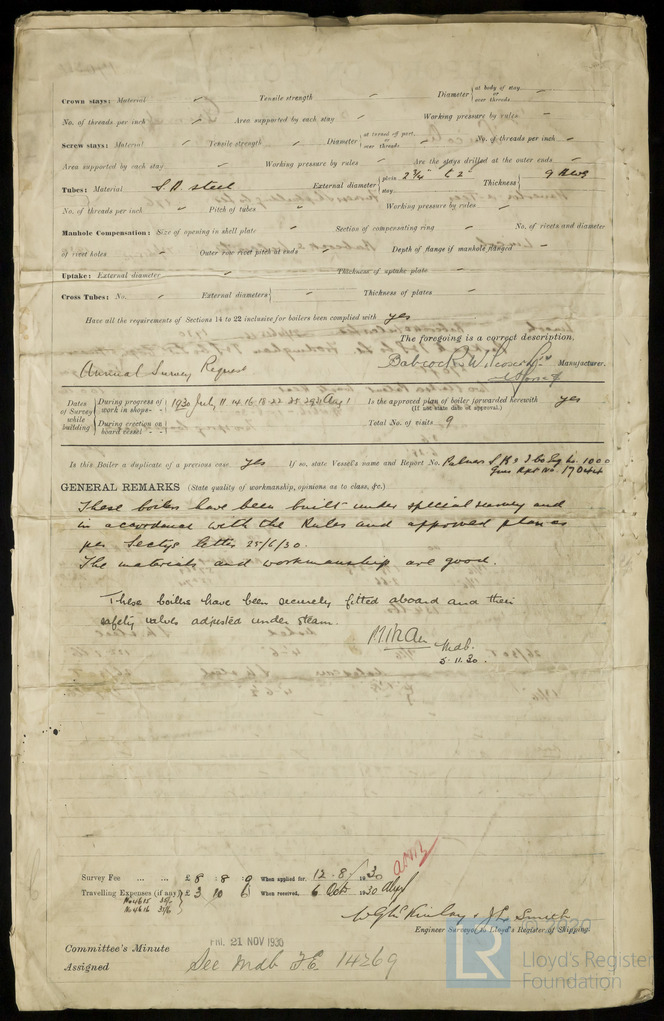 Crown stays: Material Tensile strength Diameter at body of stay, or over threads
No. of threads per inch Area supported by each stay Working pressure by rules
Screw stays: Material Tensile strength Diameter at turned off part, or over threads No. of threads per inch
Area supported by each stay Working pressure by rules Are the stays drilled at the outer ends
Tubes: Material S.D. steel External diameter plain stay 2" Thickness 9
No. of threads per inch Pitch of tubes Working pressure by rules
Manhole Compensation: Size of opening in shell plate Section of compensating ring No. of rivets and diameter
of rivet holes Outer row rivet pitch at ends Depth of flange if manhole flanged
Uptake: External diameter Thickness of uptake plate
Cross Tubes: No. External diameters Thickness of plates
Have all the requirements of Sections 14 to 22 inclusive for boilers been complied with yes
The foregoing is a correct description,
Annual Survey Request Babcock & Wilcox Manufacturer.
Dates of Survey while building During progress of work in shops - - 1930 July 11 14. 16. 18. 22. 25. 29. 31 Aug 1 Is the approved plan of boiler forwarded herewith yes
(If not state date of approval.)
During erection on board vessel - - - Total No. of visits 9
Is this Boiler a duplicate of a previous case yes If so, state Vessel's name and Report No. Palmers 1000
Rpt No. 17
GENERAL REMARKS (State quality of workmanship, opinions as to class, &c.)
These boilers have been built under special survey and
in accordance with the Rules and approved plan as
per Sectys letter 25/6/30.
The materials and workmanship are good.
These boilers have been securely fitted aboard and their
safety valves adjusted under steam.
Mdb.
5.11.30.
Survey Fee ... ... £ 8 : 8 : 0 When applied for, 12.8.1930
Travelling Expenses (if any) £ 3 : 10 : 6 When received, 6 Oct 1930
Engineer Surveyor to Lloyd's Register of Shipping.
Committee's Minute FRI. 21 NOV 1930
Assigned See Mdb F.E. 14269
2020
LR Lloyd's Register
Foundation